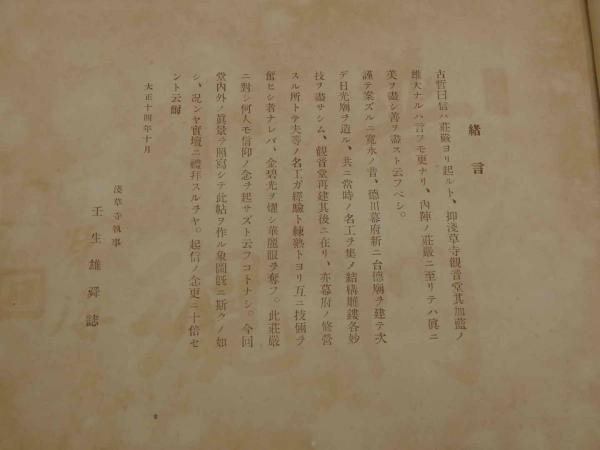 緒言
古哲曰信ハ莊嚴ヨリ起ルト、抑淺草寺觀音堂其加藍ノ
雄大ナルハ言フモ更ナリ、內陣ノ莊嚴ニ至リテハ眞ニ
美ヲ盡シ善ヲ盡スト云フベシ。
謹テ案ズルニ寬永ノ昔、德川幕府新ニ台德廟ヲ建テ次
デ日光廟ヲ造ル、共ニ當時ノ名工ヲ集メ結構雕鏤各妙
技ヲ盡サシム、觀音堂再建其後ニ在リ、亦幕府ノ修營
スル所トテ夫等ノ名工ガ經驗ト練熟トヨリ互ニ技倆ヲ
奮ヒシ者ナレバ、金碧光ヲ耀シ華麗眼ヲ奪フ。此莊嚴
ニ對シ何人モ信仰ノ念ヲ起サズト云フコトナシ。今回
堂內外ノ眞景ヲ照寫シテ此帖ヲ作ル象圖旣ニ斯クノ如
シ、況ンヤ寶壇ニ禮拜スルヲヤ。起信ノ念更ニ十倍セ
ント云爾
大正十四年十月
淺草寺執事
壬生雄舜誌